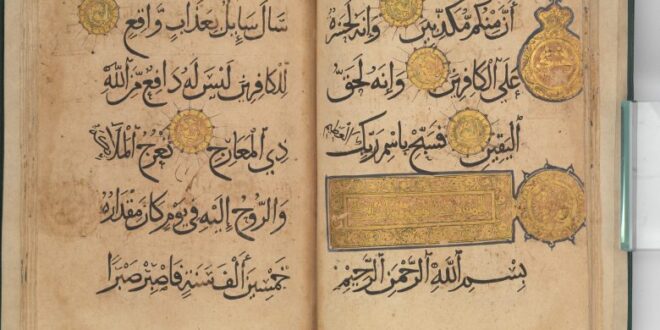 أَنَّ مِنكُم مُكَذِّبِينَ وَإِنَّهُ لَحَسْرَةٌ
عَلَى الْكَافِرِينَ وَإِنَّهُ لَحَقُّ
الْيَقِينِ فَسَبِّحْ بِاسْمِ رَبِّكَ الْعَظِيمِ
بِسْمِ اللَّهِ الرَّحْمَنِ الرَّحِيمِ
سَأَلَ سَايِلٌ بِعَذَابٍ وَاقِعٍ
لِلْكَافِرِينَ لَيْسَ لَهُ دَافِعٌ مِّنَ اللَّهِ
ذِي الْمَعَارِجِ تَعْرُجُ الْمَلَائِكَةُ
وَالرُّوحُ إِلَيْهِ فِي يَوْمٍ كَانَ مِقْدَارُهُ
خَمْسِينَ أَلْفَ سَنَةٍ فَاصْبِرْ صَبْرًا